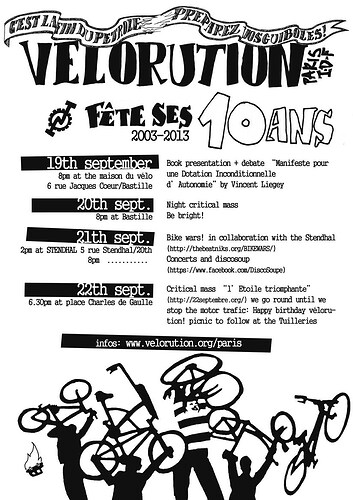 C'EST LA FIN DU PETROLE PREPAREZ VOS GUIBOLES!
VÉLORUTION
PARIS
IDF
FÊTE SES 10 ANS
2003-2013
19th september
8pm at the maison du vélo
6 rue Jacques Coeur/Bastille
Book presentation + debate "Manifeste pour
une Dotation Inconditionnelle
d' Autonomie" by Vincent Liegey
20th sept.
8pm at Bastille
Night critical mass
Be bright!
21th sept.
2pm at STENDHAL 5 rue Stendhal/20th
8pm ...........
Bike wars! in collaboration with the Stendhal
(http://thebeatniks.org/BIKEWARS/)
Concerts and discosoup
(https://www.facebook.com/DiscoSoupe)
22th sept.
6.30pm at place Charles de Gaulle
Critical mass "l' Etoile triomphante"
(http://22septembre.org/) we go round until we
stop the motor trafic: Happy birthday véloru-
tion! picnic to follow at the Tuilleries
infos: www.velorution.org/paris